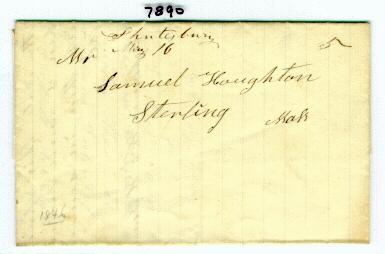 7890
Shutesbury
May 16
5
Mr
Samuel Houghton
Sterling
Mass
1846